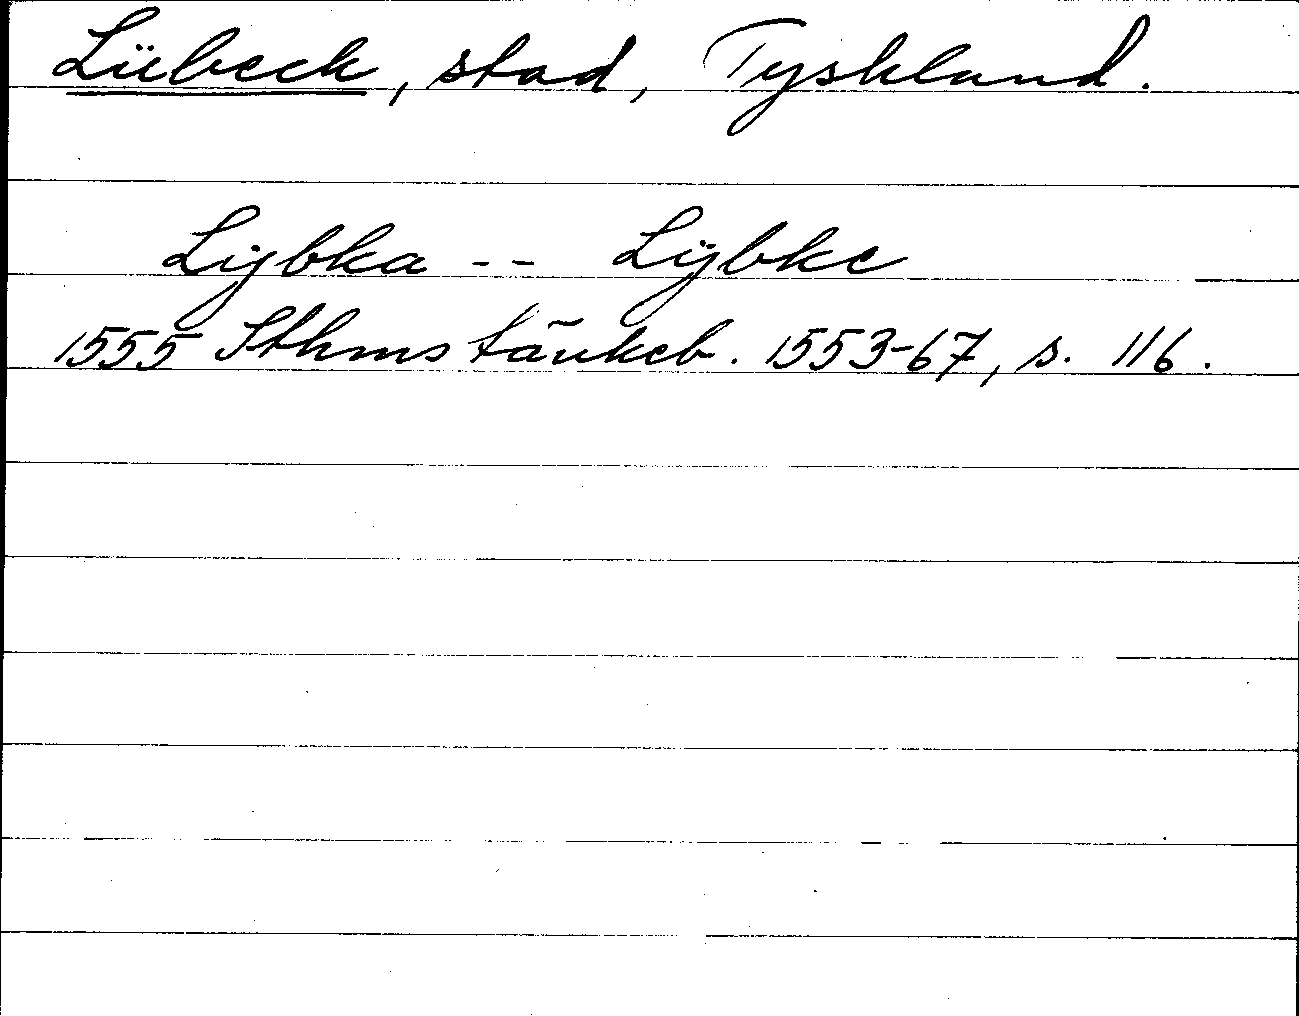 Lübeck, stad, Tyskland.
Lÿbka -- Lÿbke
1555 Sthms tänkeb. 1553-67, s. 116.